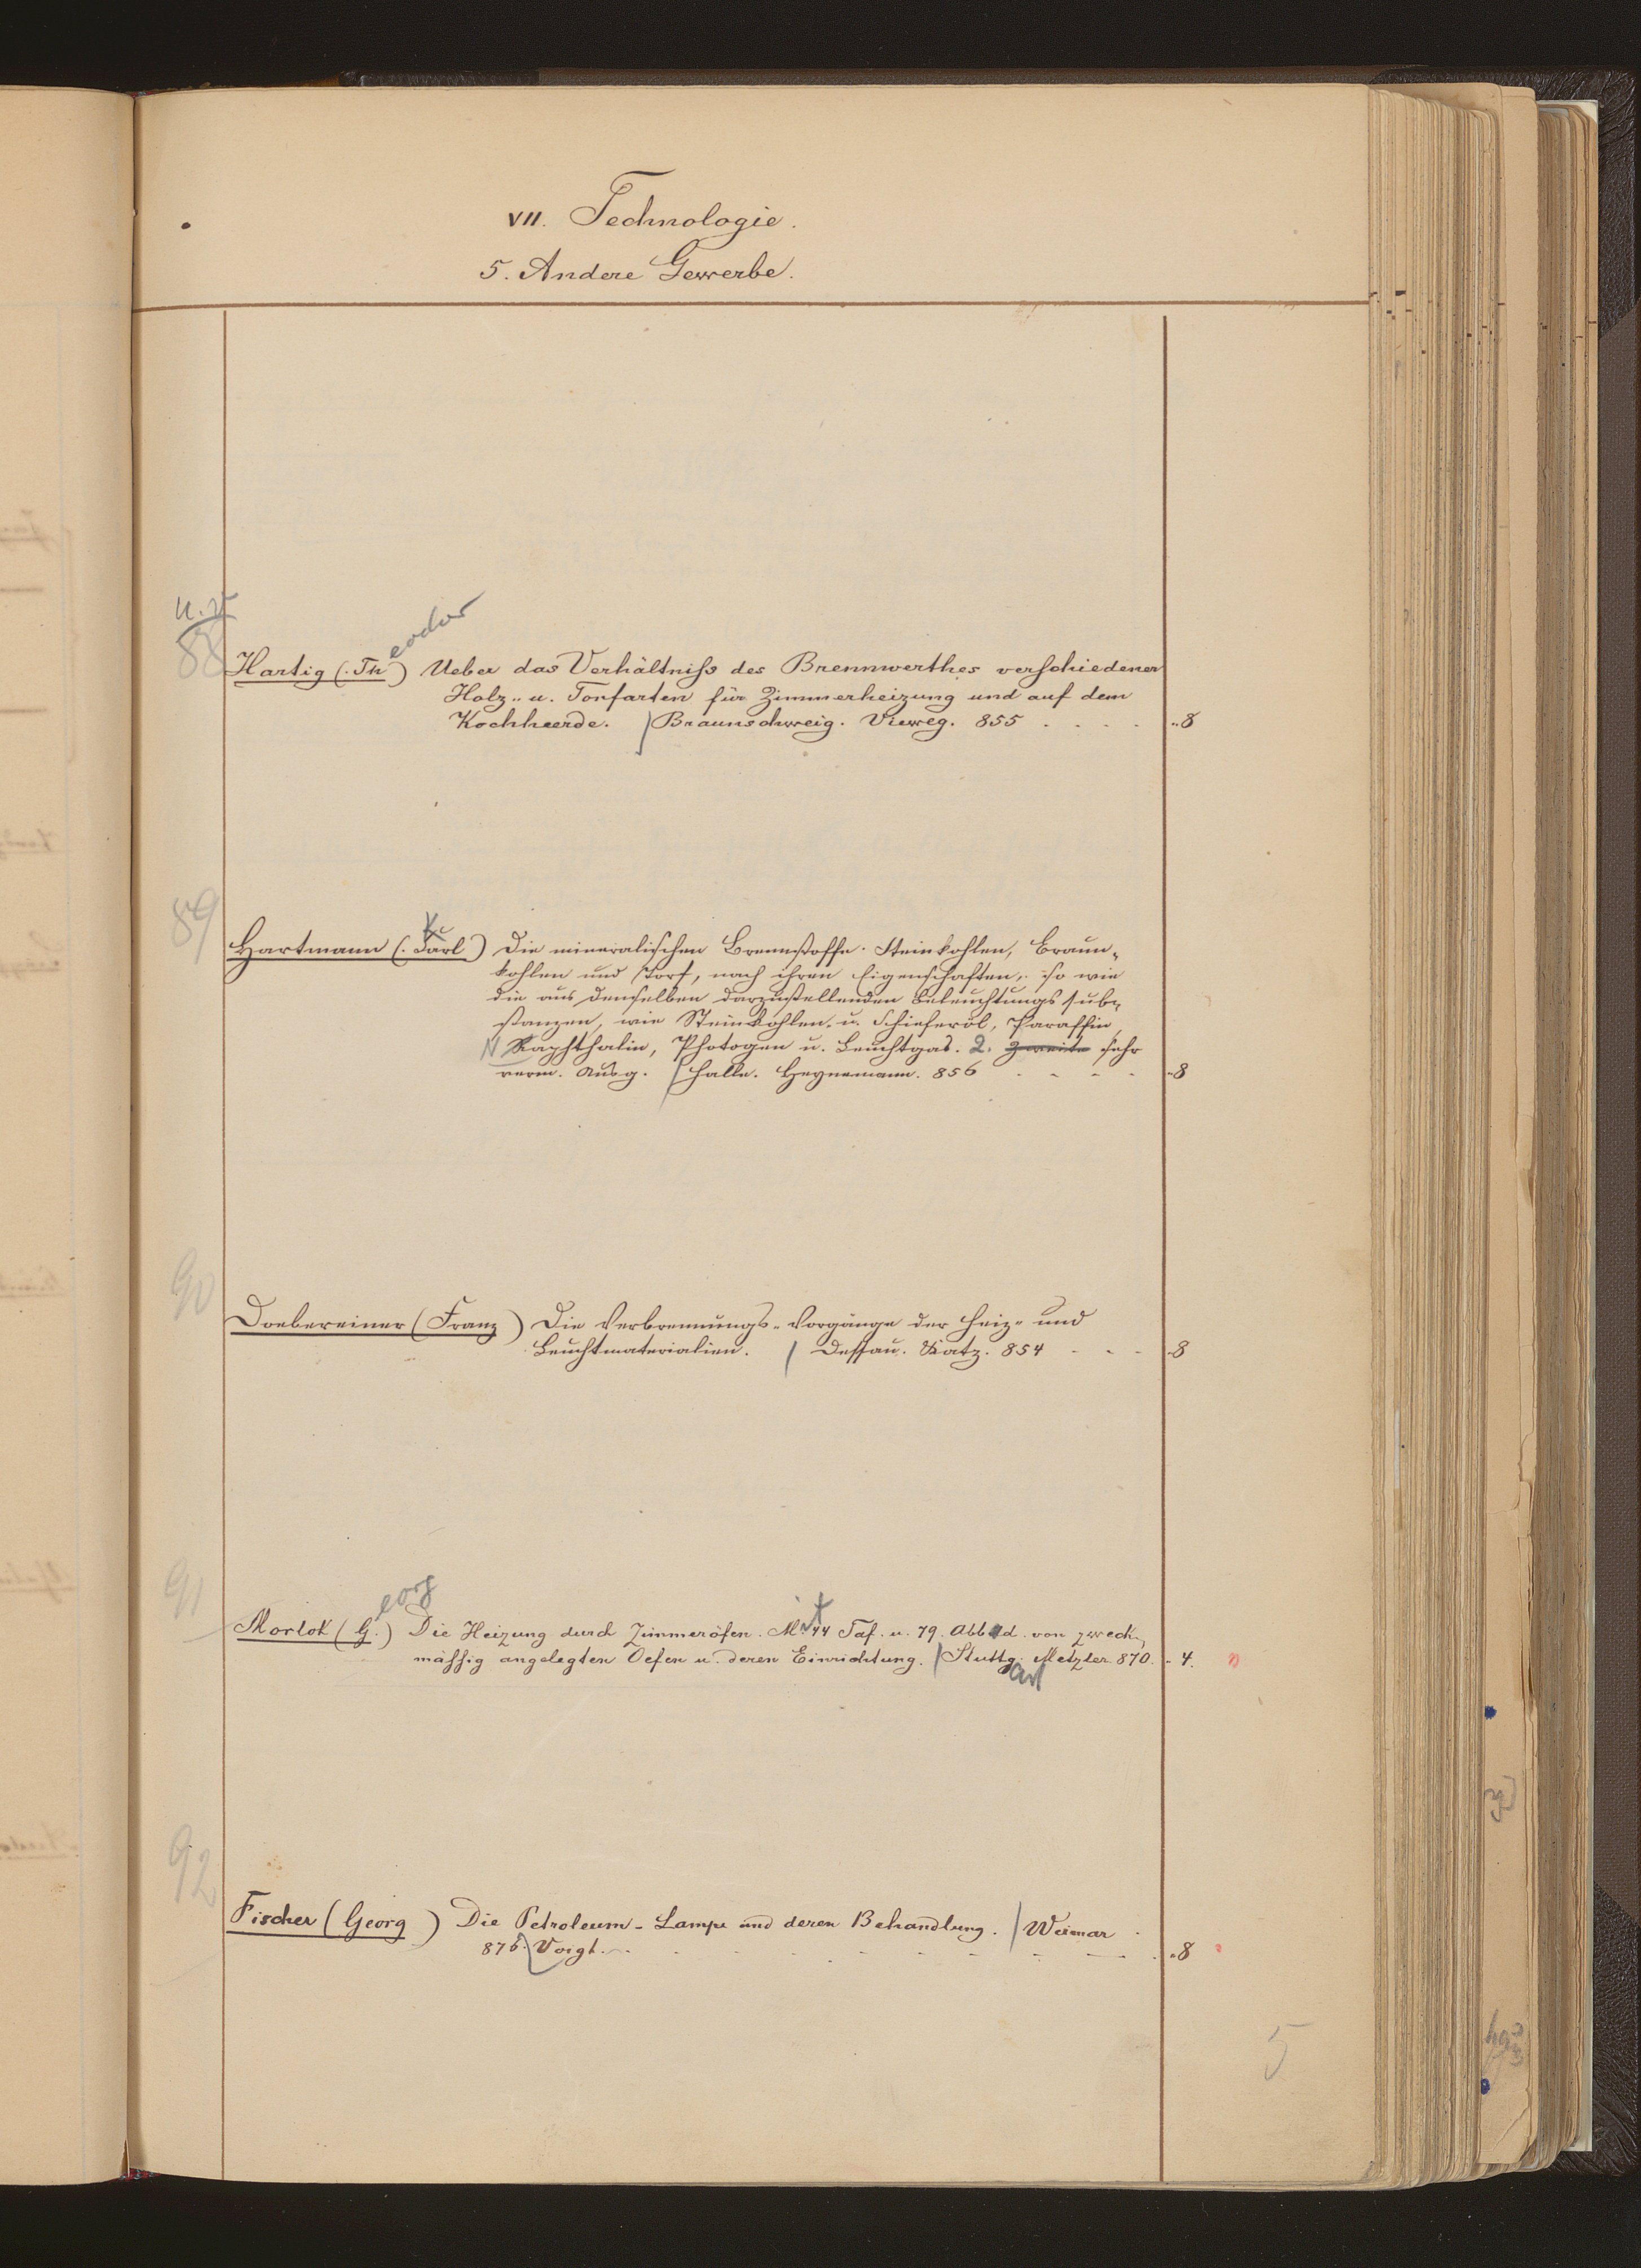 VII. Technologie.
5. Andere Gewerbe.
88
eodor
Hartig (Th.) Ueber das Verhältniss des Brennwerthes verschiedener
Holz- u. Torfarten für Zimmerheizung und auf dem
Kochheerde. / Braunschweig. Vieweg. 855 . . . . 8
89
K
Hartmann (Carl) Die mineralischen Brennstoffe. Steinkohlen, Braun-
kohlen und Torf, nach ihren Eigenschaften, so wie
die aus denselben darzustellenden Beleuchtungssub-
stanzen, wie Steinkohlen- u. Schieferöl, Paraffin,
Naphthalin, Photogen u. Leuchtgas. 2. Zweite sehr
verm. Ausg. / Halle. Heynemann. 856 - - - - 8
90
Doebereiner (Franz) Die Verbrennungs-Vorgänge der Heiz- und
Leuchtmaterialien. / Dessau. Katz. 854 - - - 8
91
eorg
Morlok (G.) Die Heizung durch Zimmeröfen. Mit 44 Taf. u. 79. Abbild. von zweck-
mässig angelegten Oefen u. deren Einrichtung. / Stuttg. Metzler. 870. - 4.
art
92
Fischer (Georg) Die Petroleum-Lampe und deren Behandlung. / Weimar
876. Voigt. - - - - - - - 8
5